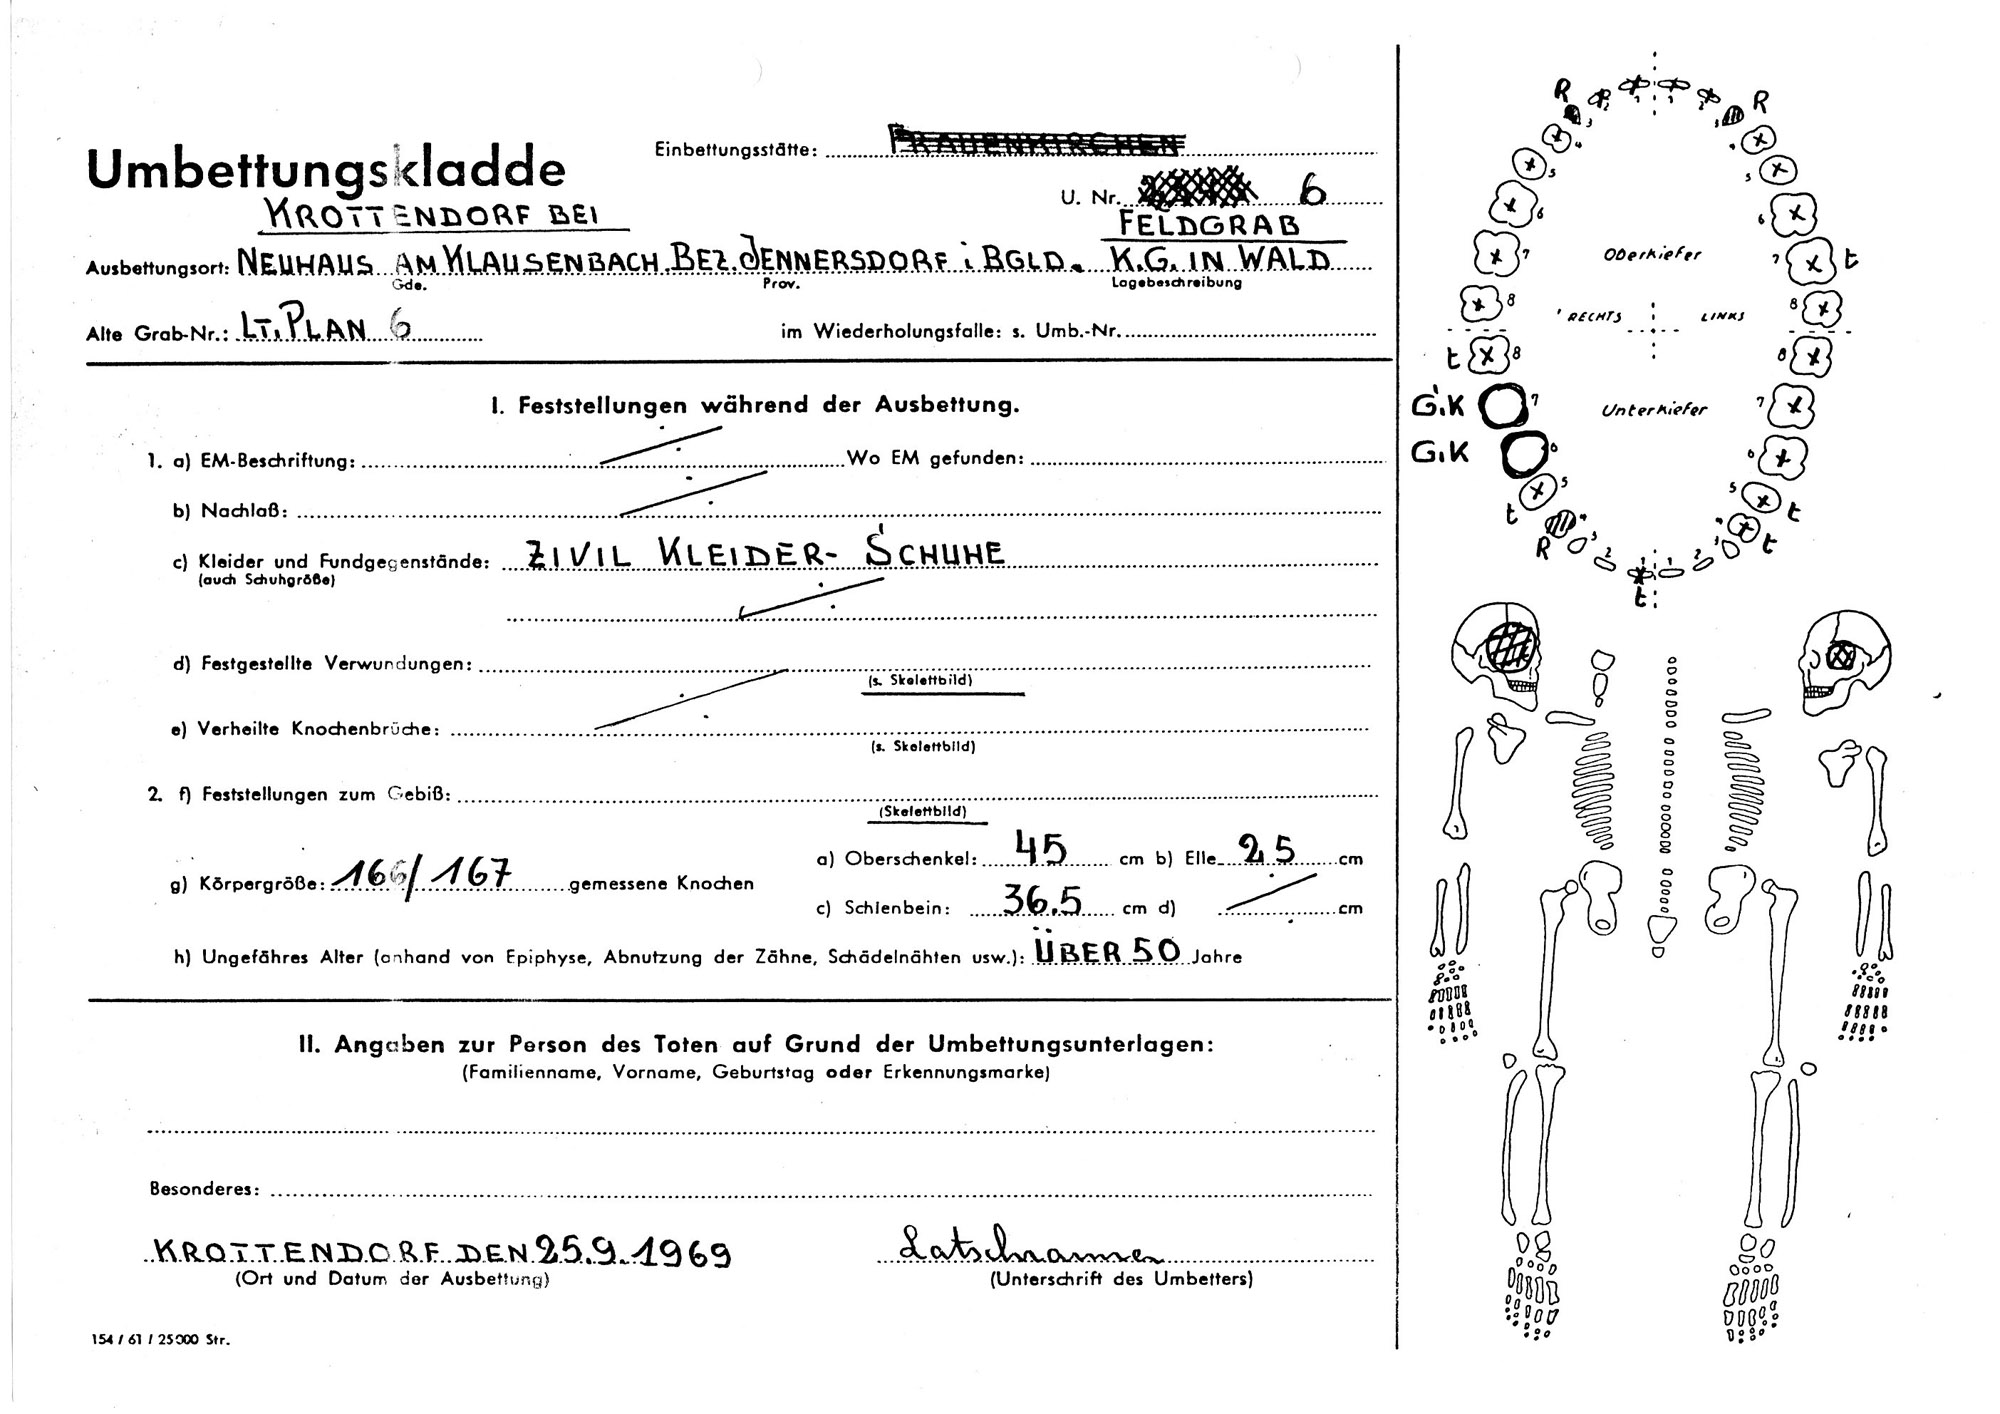 Einbettungsstätte: FRAUENKIRCHEN
Umbettungskladde
U. Nr. 6
KROTTENDORF BEI
FELDGRAB
Ausbettungsort: NEUHAUS AM KLAUSENBACH. BEZ. JENNERSDORF i BGLD. K.G. IN WALD
Gde. Prov. Lagebeschreibung
Alte Grab-Nr.: LT. PLAN 6 im Wiederholungsfalle: s. Umb.-Nr.
I. Feststellungen während der Ausbettung.
1. a) EM-Beschriftung: Wo EM gefunden:
b) Nachlaß:
c) Kleider und Fundgegenstände: ZIVIL KLEIDER- SCHUHE
(auch Schuhgröße)
d) Festgestellte Verwundungen:
(s. Skelettbild)
e) Verheilte Knochenbrüche:
(s. Skelettbild)
2. f) Feststellungen zum Gebiß:
(Skelettbild)
a) Oberschenkel: 45 cm b) Elle 25 cm
g) Körpergröße: 166/167 gemessene Knochen
c) Schienbein: 36.5 cm d) cm
h) Ungefähres Alter (anhand von Epiphyse, Abnutzung der Zähne, Schädelnähten usw.): ÜBER 50 Jahre
II. Angaben zur Person des Toten auf Grund der Umbettungsunterlagen:
(Familienname, Vorname, Geburtstag oder Erkennungsmarke)
Besonderes:
KROTTENDORF DEN 25.9.1969
(Ort und Datum der Ausbettung) (Unterschrift des Umbetters)
154 / 61 / 25000 Str.
R 2 1 1 2 R
3 3
4 4
5 5
6 6
7 Oberkiefer 7 t
8 RECHTS LINKS 8
t 8 8
G.K 7 Unterkiefer 7
G.K 6 6
t 5 5 t
R 4 4 t
3 2 1 1 2 3
t